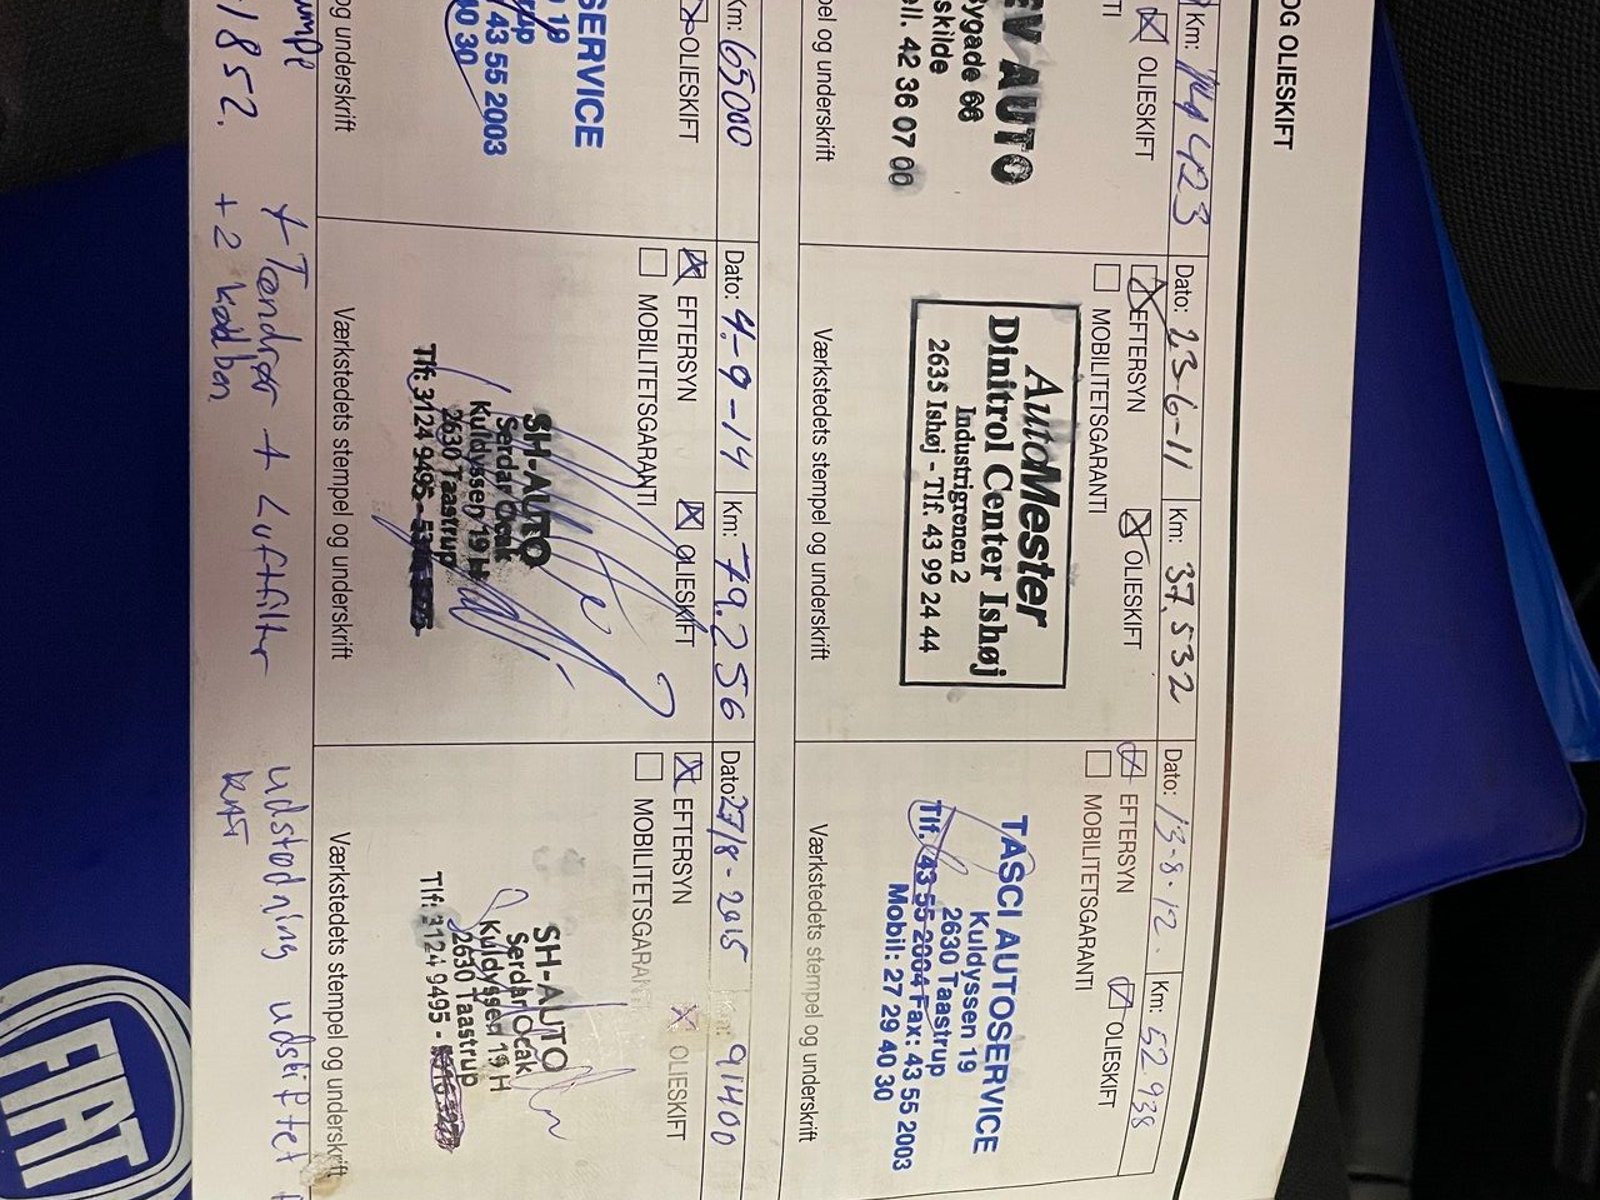 OG OLIESKIFT
Km:
OLIESKIFT
EV AUTO
ygade 66
skilde
ell. 42 36 07 00
pel og underskrift
Dato: 23-6-11 Km: 37.532
EFTERSYN OLIESKIFT
MOBILITETSGARANTI
AutoMester
Dinitrol Center Ishøj
Industrigrenen 2
2635 Ishøj - Tlf. 43 99 24 44
Værkstedets stempel og underskrift
Dato: 13-8-12. Km: 52938
EFTERSYN OLIESKIFT
MOBILITETSGARANTI
TASCI AUTOSERVICE
Kuldyssen 19
2630 Taastrup
Tlf. 43 55 2004 Fax: 43 55 2003
Mobil: 27 29 40 30
Værkstedets stempel og underskrift
Km: 65000
OLIESKIFT
SERVICE
19
rup
43 55 2003
40 30
og underskrift
Dato: 4-9-14 Km: 79.256
EFTERSYN OLIESKIFT
MOBILITETSGARANTI
SH-AUTO
Serdar Ocak
Kuldyssen 19 H
2630 Taastrup
Tlf: 3124 9495 -
Værkstedets stempel og underskrift
Dato: 27/8-2015 Km: 91400
EFTERSYN OLIESKIFT
MOBILITETSGARANTI
SH-AUTO
Serdar Ocak
Kuldyssen 19 H
2630 Taastrup
Tlf: 3124 9495 -
Værkstedets stempel og underskrift
umpe
1852.
+ Tændrør + Luftfilter
+ 2
udstødning udskiftet
FIAT